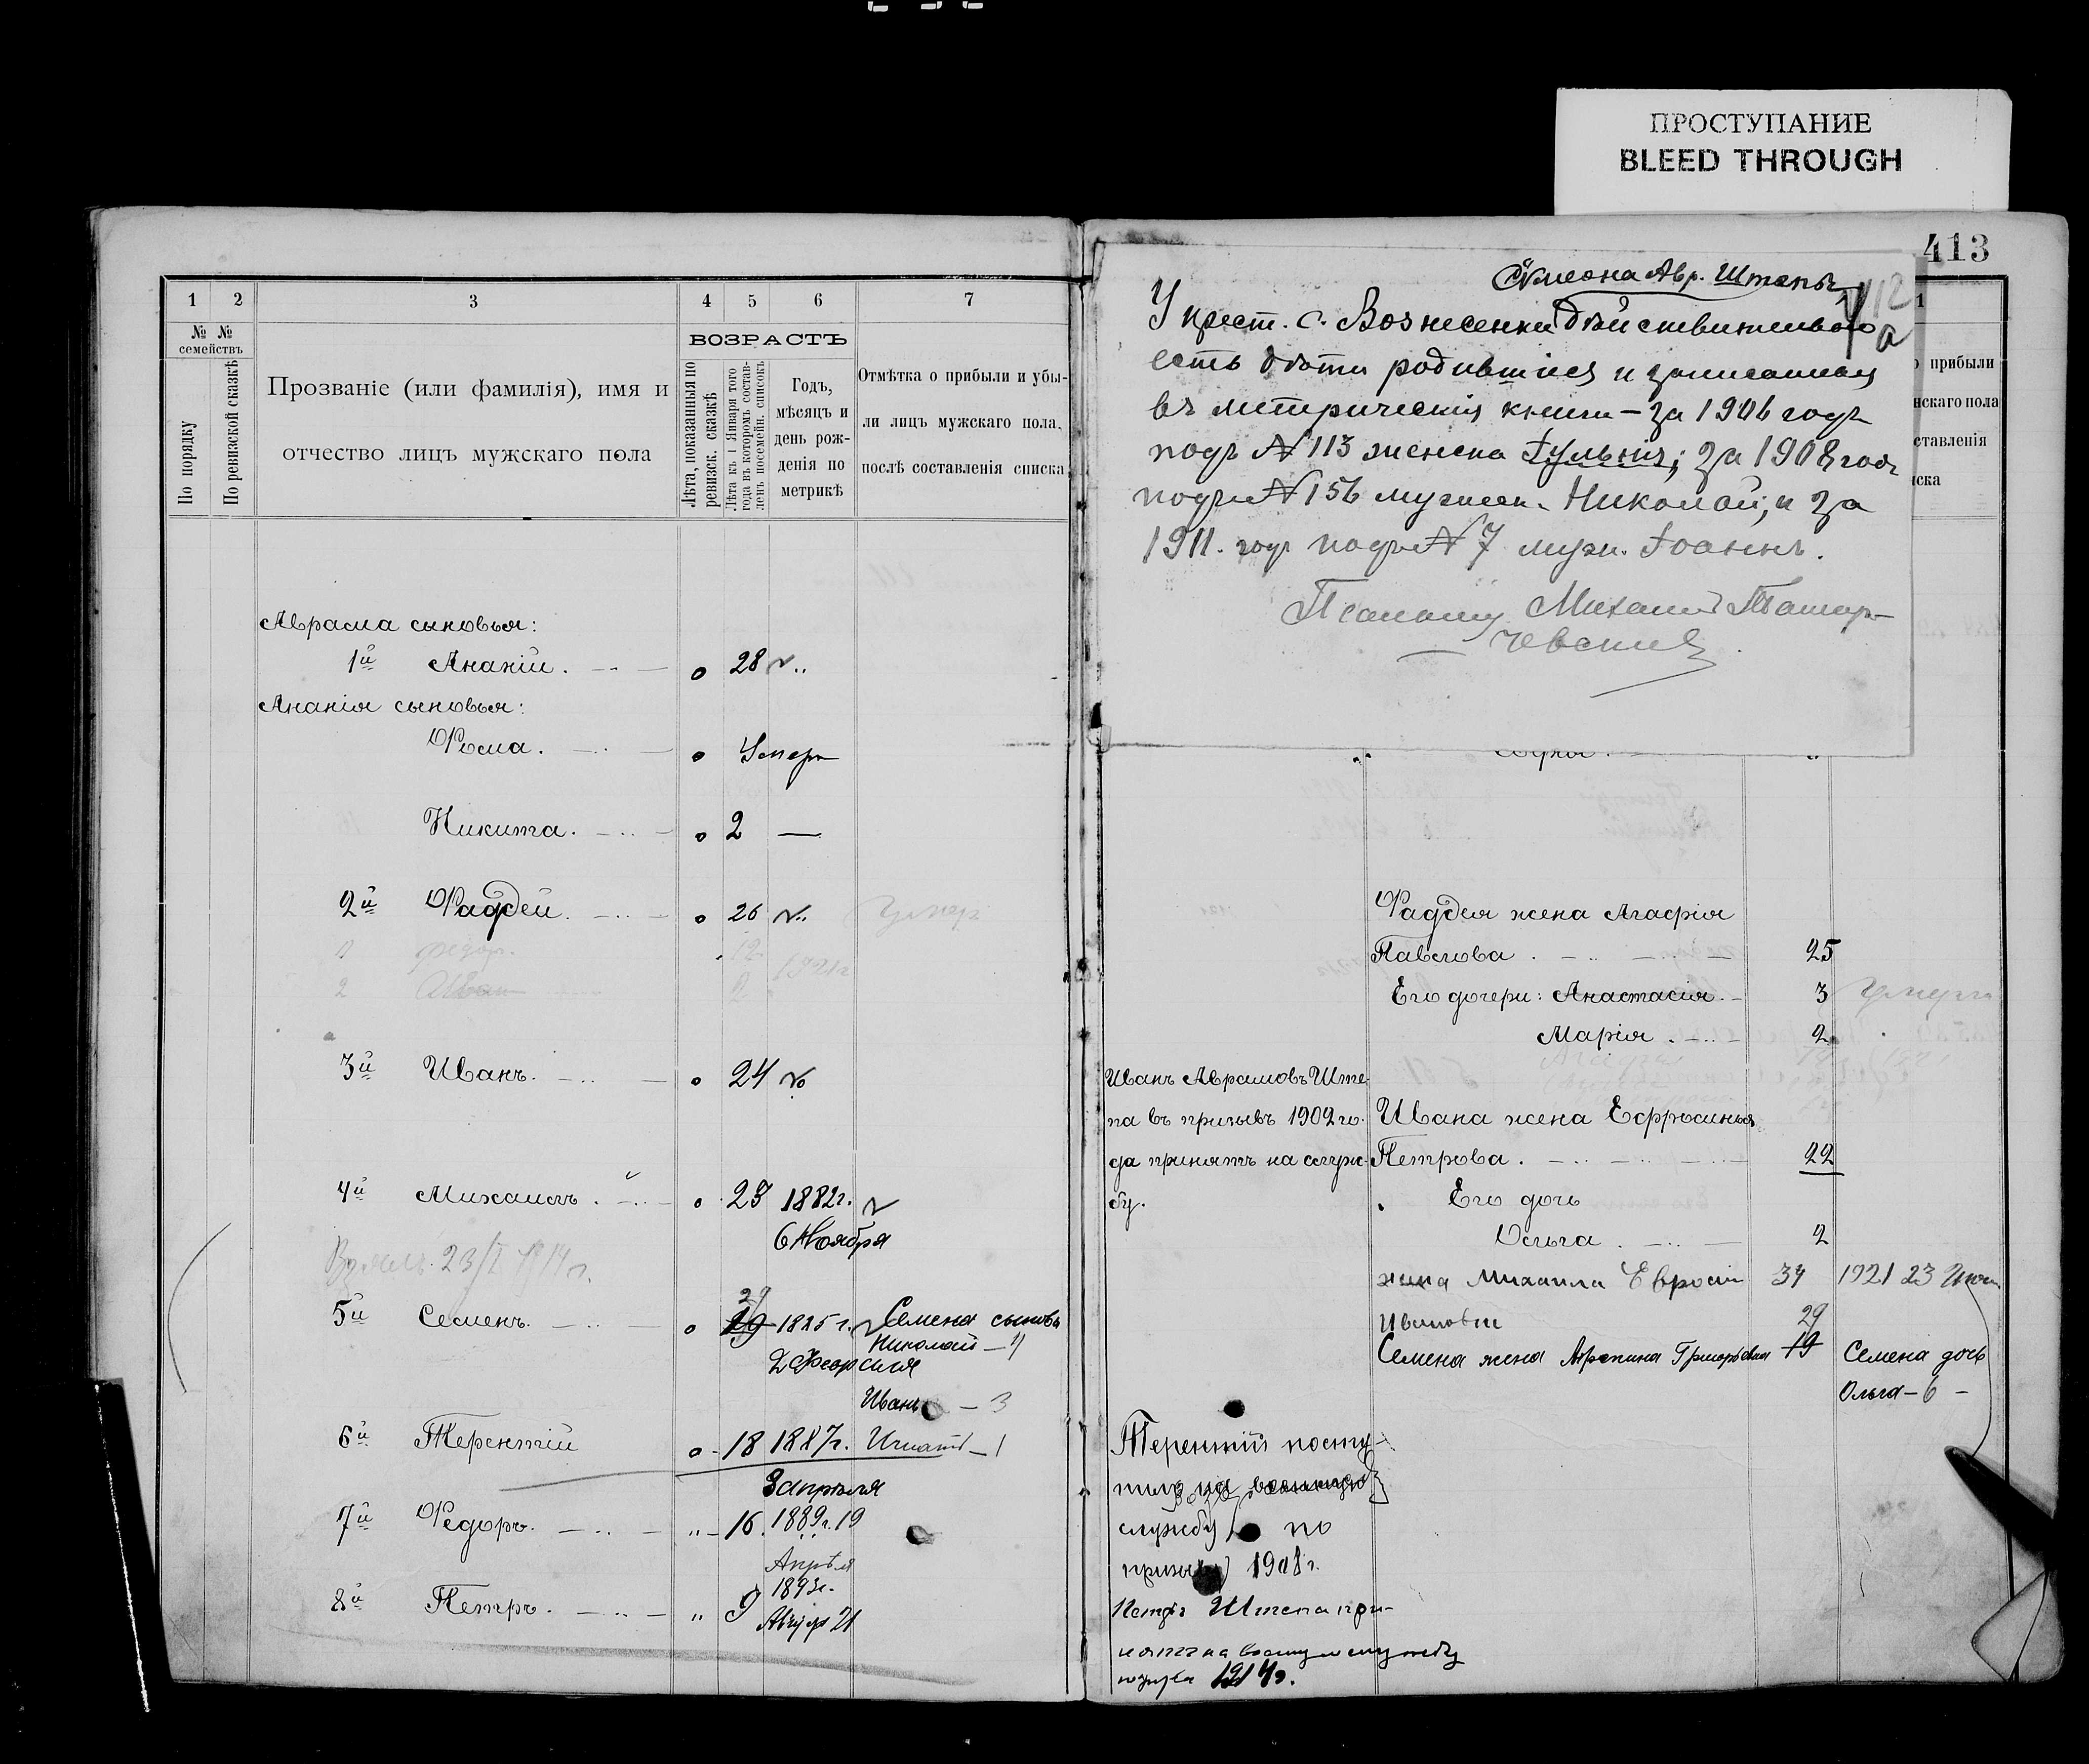 ПРОСТУПАНИЕ
BLEED THROUGH
413
1 2 3 4 5 6 7
№ № семействъ
По порядку
По ревизской сказкѣ
Прозваніе (или фамилія), имя и
отчество лицъ мужскаго пола
ВОЗРАСТЪ
Лѣта, показанныя по
ревизск. сказкѣ
Лѣта къ 1 Января того
года въ которомъ состав-
ленъ посемейн. списокъ
Годъ,
мѣсяцъ и
день рож-
денія по
метрикѣ
Отмѣтка о прибыли и убы-
ли лицъ мужскаго пола,
послѣ составленія списка
Аврама сыновья:
1й Ананій. 0 28
Ананія сыновья:
Фома. 0 Умеръ
Никита. 0 2 —
2й Фаддей. 0 26 умеръ
1 Федор. 12
2 Иван 2 1921г
3й Иванъ. 0 24
4й Михаилъ. 0 23 1882г.
6 Ноября
23/I 1914г.
5й Семенъ. 0 29 19 1885г. Семена сыновья
Николай — 4
2 Февраля
Иванъ — 3
6й Терентій 0 18 1887г. Игнатъ — 1
3 апрѣля
7й Федоръ. " 16. 1889г. 19
Апрѣля
8й Петръ. " 9 1893г.
Авгус 21
Симеона Авр. Штепы
412
а
У крест. с. Вознесенки дѣйствительно
есть дѣти родившіеся и записанныя
въ метрическія книги — за 1906 годъ
подъ № 113 женска Іулнія; за 1908 годъ
подъ № 156 мужеск. Николай, и за
1911. годъ подъ № 7 муж. Іоаннъ.
Псаломщ Михаилъ
1
прибыли
нскаго пола
ставленія
ска
Фаддея жена Агафія
Павлова 25
Его дочери: Анастасія. 3 умерла
Марія. 2
Иванъ Аврамовъ Ште-
па въ призывъ 1902 го-
да принятъ на служ-
бу.
Ивана жена Ефросинья
Петрова. 22
Его дочь
Ольга 2
жена Михаила Евросин 34 1921 23 Июн
Ивановна 29
Семена жена Агрепина Григорьевна 19 Семена дочь
Ольга — 6 —
Терентій посту-
пилъ на военную
службу по
призыву 1908г.
Петръ Штепа при-
нятъ на военную службу
1914г.